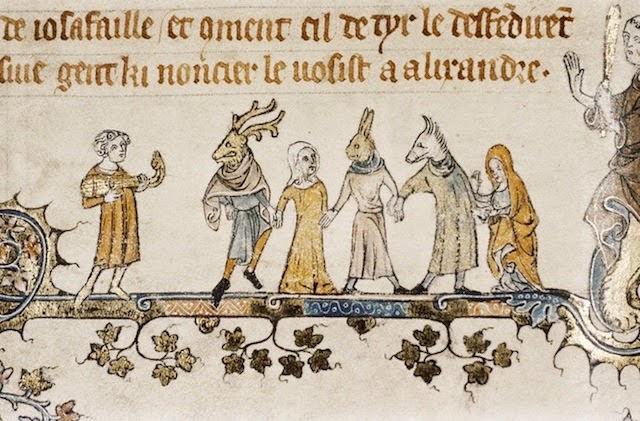 de iosafaille / et ꝯment cil de tyr le deffẽdirẽt
siue gent ki noncier le uosist a alixandre.